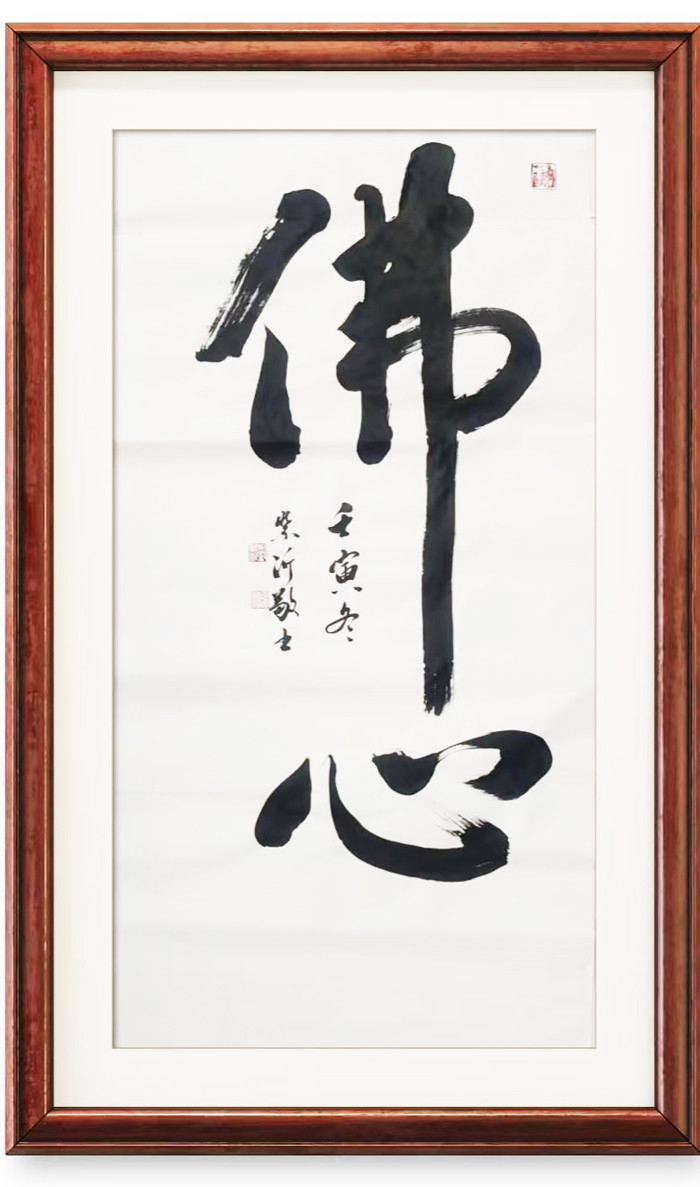 佛心
壬寅冬
紫沂敬书